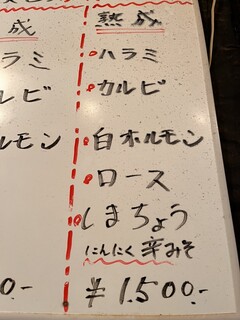 熟成
ハラミ
カルビ
白ホルモン
ロース
しまちょう
にんにく辛みそ
¥1,500.-
成
ラミ
ルビ
ルモン
0.-